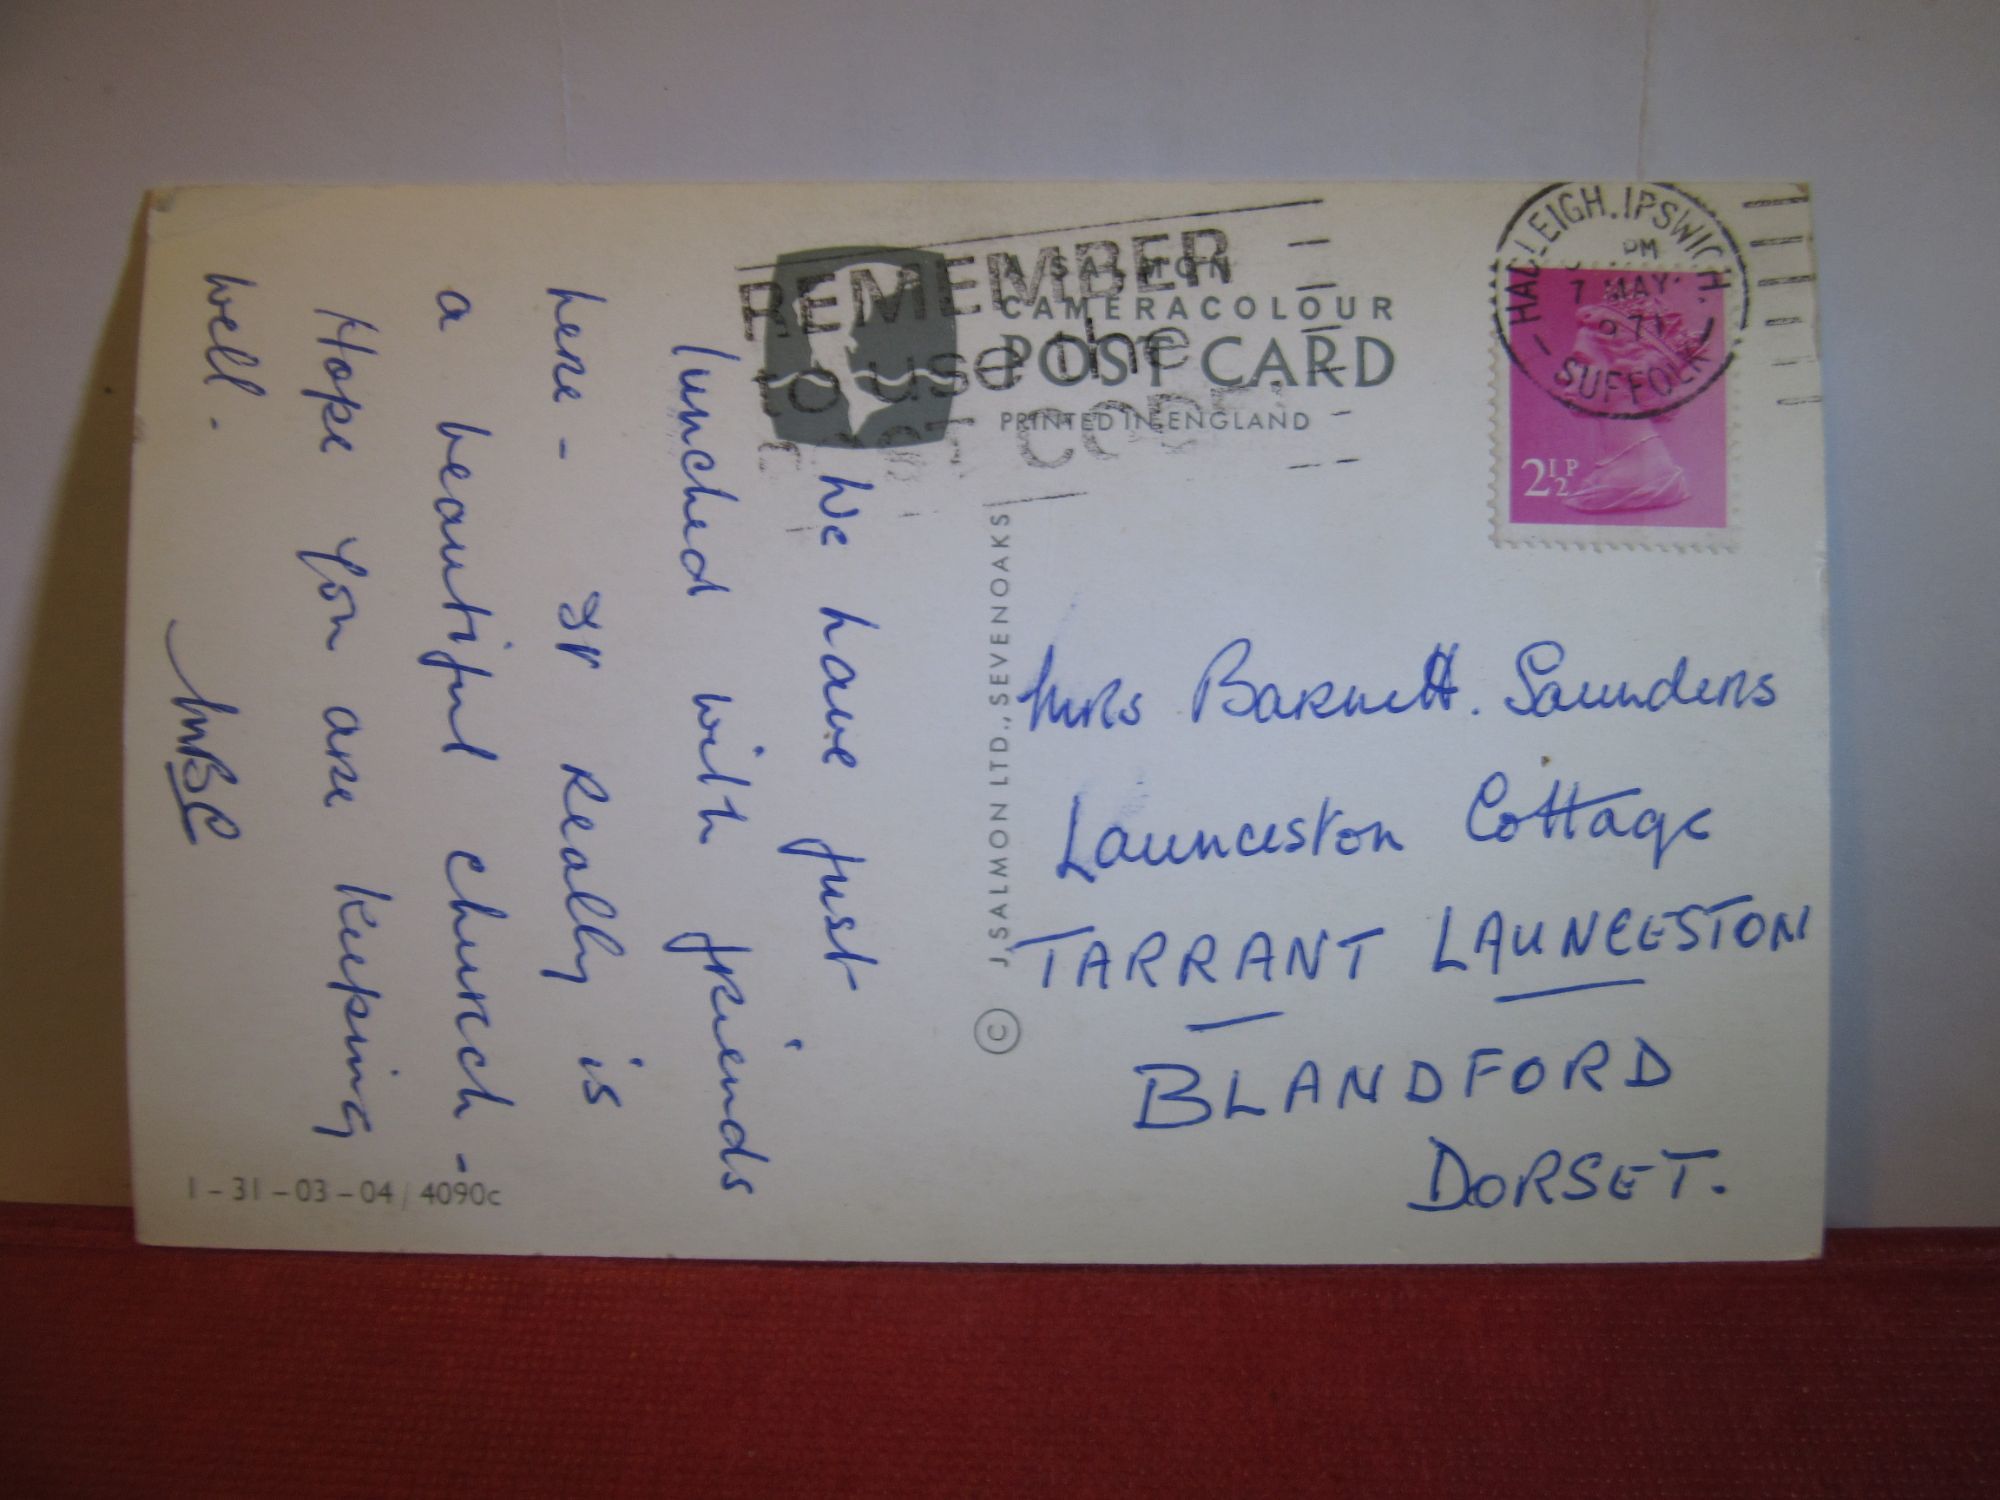 We have just
lunched with friends
here - It really is
a beautiful church -
Hope you are keeping
well.
MBC
REMEMBER
to use the
POST CODE
A SALMON
CAMERACOLOUR
POST CARD
PRINTED IN ENGLAND
J SALMON LTD., SEVENOAKS
©
HADLEIGH. IPSWICH.
PM
7 MAY
1971
SUFFOLK
2½P
Mrs Barnett. Saunders
Launceston Cottage
TARRANT LAUNCESTON
BLANDFORD
DORSET.
1-31-03-04/4090c